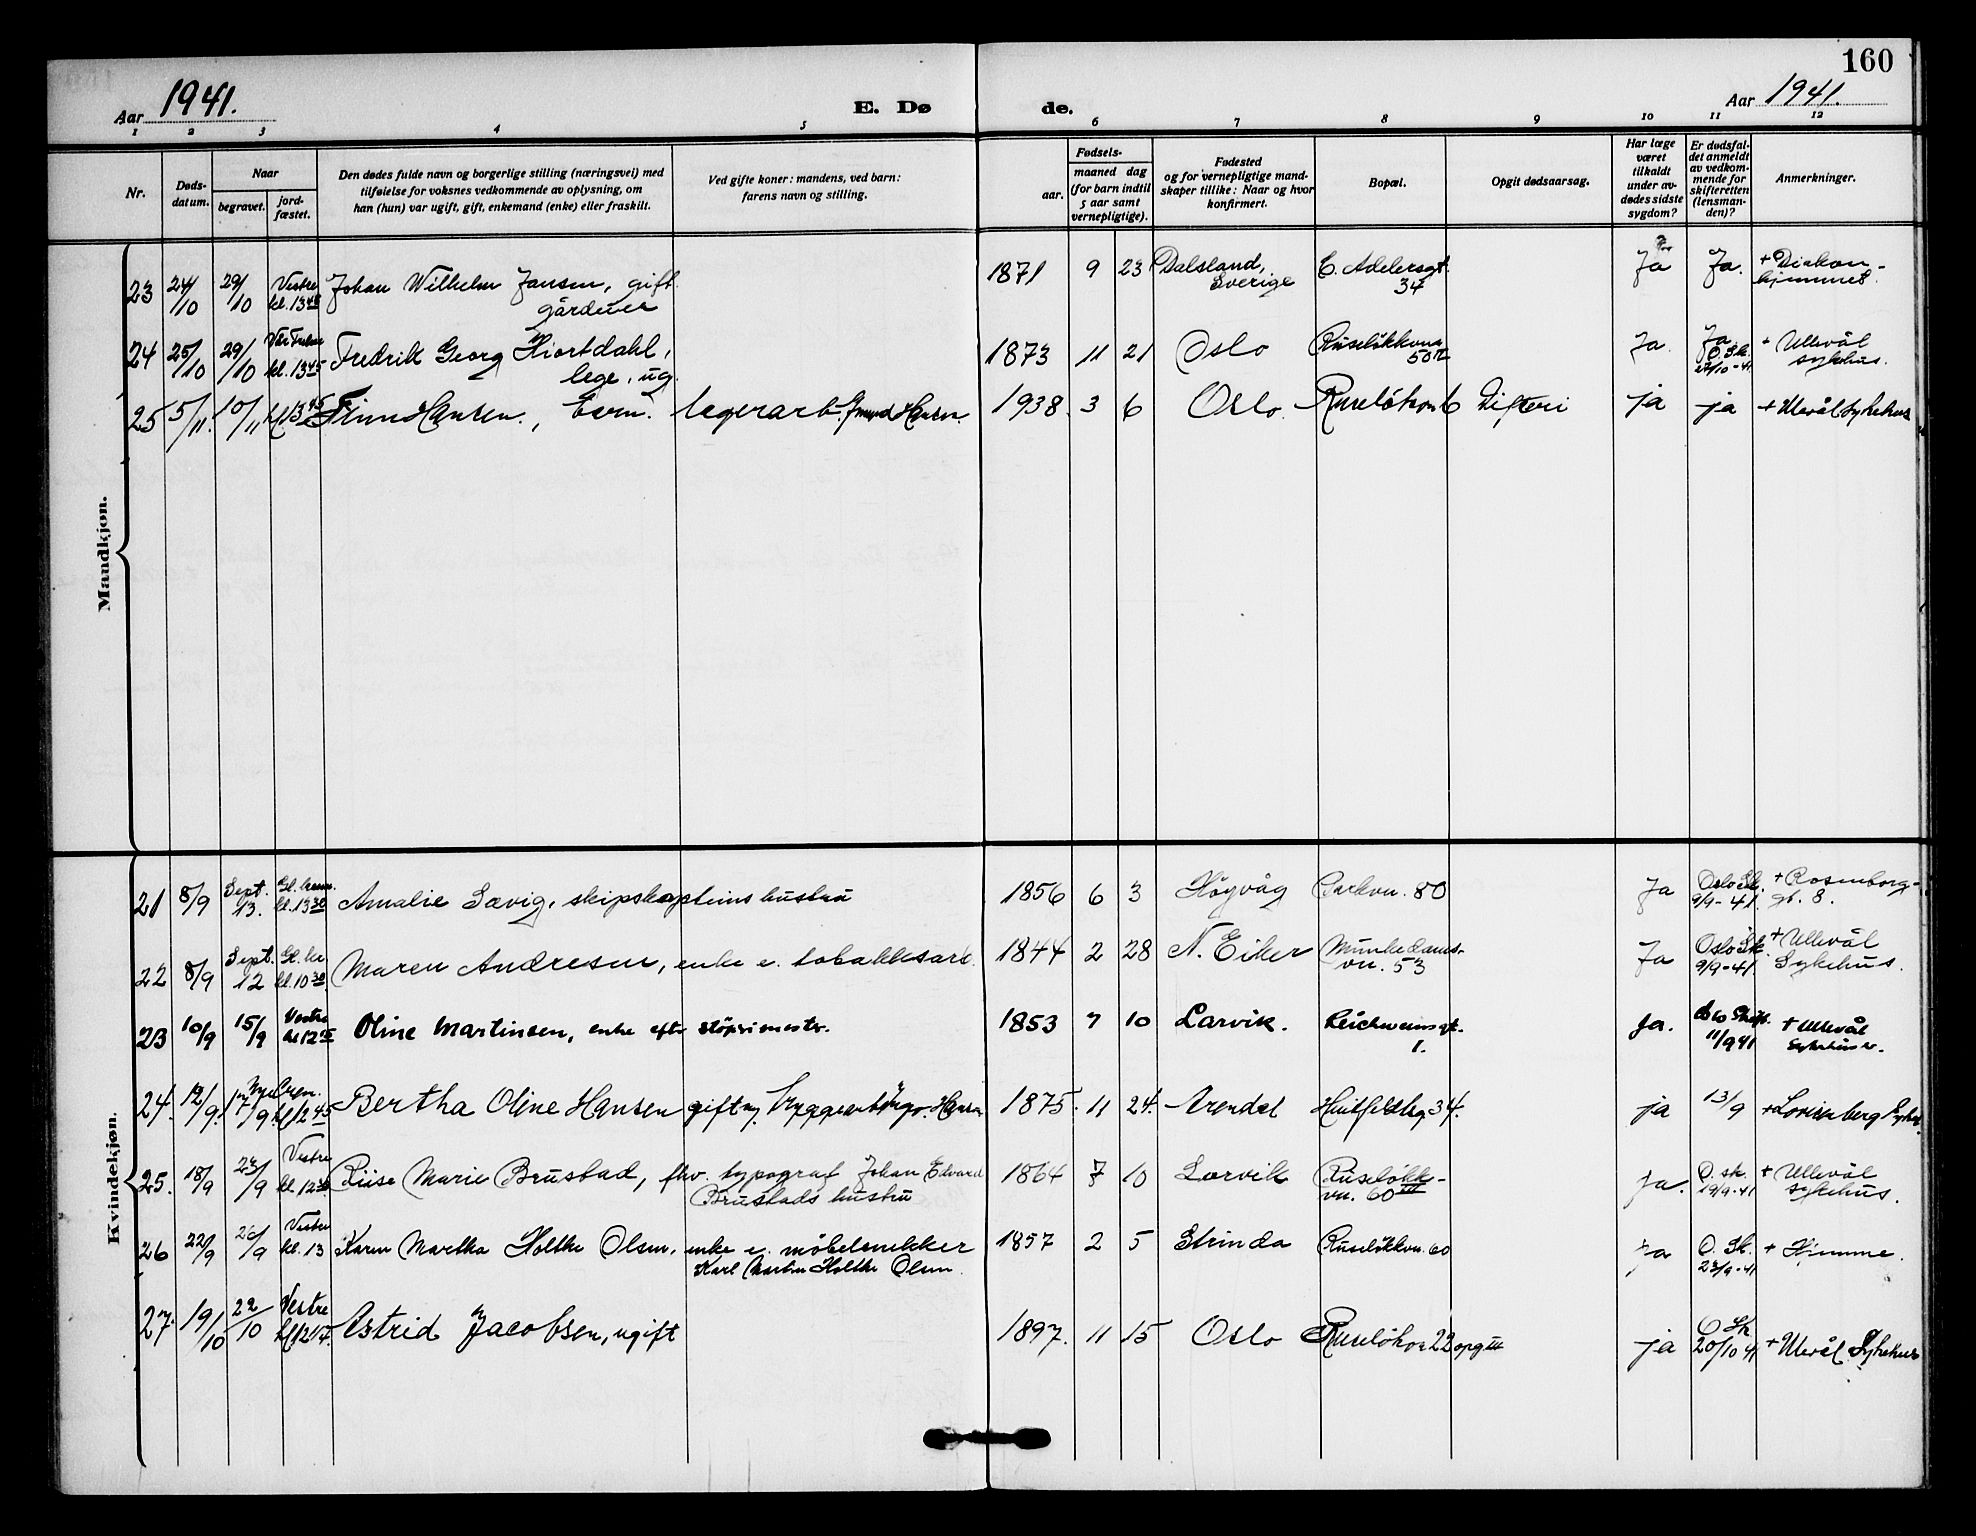 160
Aar 1941. E. Dø de. Aar 1941.
1 2 3 4 5 6 7 8 9 10 11 12
Nr.
Døds-
datum.
Naar
begravet.
jord-
fæstet.
Den dødes fulde navn og borgerlige stilling (næringsvei) med
tilføielse for voksnes vedkommende av oplysning, om
han (hun) var ugift, gift, enkemand (enke) eller fraskilt.
Ved gifte koner: mandens, ved barn:
farens navn og stilling.
Fødsels-
aar.
maaned dag
(for barn indtil
5 aar samt
vernepligtige).
Fødested
og for vernepligtige mand-
skaper tillike: Naar og hvor
konfirmert.
Bopæl.
Opgit dødsaarsag.
Har læge
været
tilkaldt
under av-
dødes sidste
sygdom?
Er dødsfal-
det anmeldt
av vedkom-
mende for
skifteretten
(lensman-
den)?
Anmerkninger.
Mandkjøn.
23 24/10 29/10 Vestre Johan Wilhelm Jansen, gift 1871 9 23 Dalsland, C. Adelersgt. Ja Ja. + Diakon-
kl. 13 45 gårdeier Sverige 34 hjemmet.
24 25/10 29/10 Fredrik Georg Hiortdahl, 1873 11 21 Oslo Ruseløkkvn. Ja. Ja + Ullevål
kl. 13 45 lege, ug. 50 O. Sk. sykehus.
29/10-41
25 5/11. 10/11 Finn Hansen, legerarb. Hansen. 1938. 3 6 Oslo. Ruseløkvn 6 Difteri ja ja + Ulevål Sykehus
Kvindekjøn.
21 8/9 Sept. 13. Gl. krem. kl. 13 30 Amalie Sævig, skipskapteins hustru 1856 6 3 Høyvåg Parkvn. 80 Ja Oslo Sk. + Rosenborg-
9/9-41. gt. 8.
22 8/9 Sept. 12 Gl. kr. kl. 10 30 Maren Andresen, enke e. tobakksarb. 1844 2 28 N. Eiker Munkedams- Ja Oslo Sk. + Ullevål
vn. 53 9/9-41. Sykehus.
23 10/9 15/9 Vestre Oline Martinsen, enke eftr støperimester. 1853 7 10 Larvik. Reichweinsgt. Ja. Oslo Skift. + Ullevål
kl 12 15 1. 11/9 41 Sykehus.
24. 12/9. 17/9. Nye Crem. kl 12 45 Bertha Oline Hansen gift m. Hansen 1875. 11 24. Arendal Huitfeldtsg 34. ja 13/9 + Lovisenberg Sykeh.
25. 18/9 23/9 Vestre kl. 12 30 Riise Marie Brustad, fhv. typograf Johan Edvard 1864 7 10 Larvik Ruseløkk- Ja. O. sk. + Ullevål
Brustads hustru vn. 60 III 19/9-41 sykehus.
26 22/9 26/9 Vestre kl. 13 Karen Martha Holtke Olsen, enke e. møbelsnekker 1857 2 5 Strinda Ruseløkkvn. 60 Ja O. Sk. + Hjemme.
Karl Martin Holtke Olsen. 23/9-41
27. 19/10 22/10 Vestre Astrid Jacobsen, ugift 1897. 11 15 Oslo Ruseløkvn 22 opg III ja O Sk 20/10 41 + Ulevål Sykehus